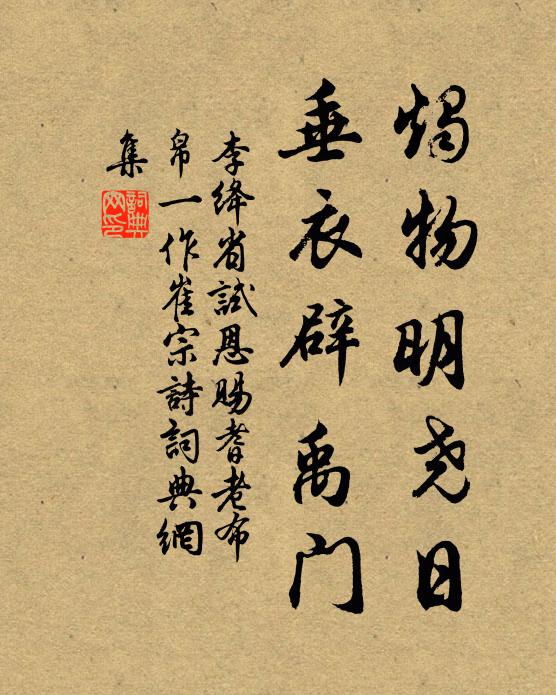 燭物明尧日
垂衣辟禹门
李绛省試恩賜耆老布
帛一作崔宗詩詞典網
集
詞典网印